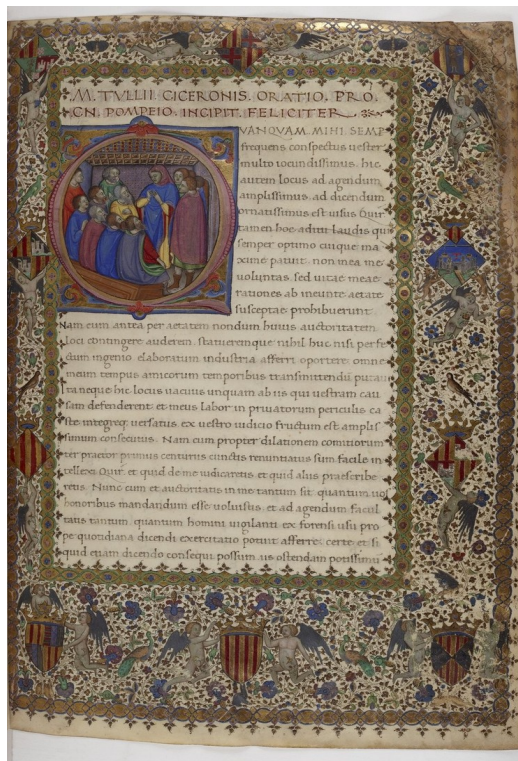 M. TVLLII. CICERONIS. ORATIO. PRO.
CN. POMPEIO. INCIPIT. FELICITER.
QVANQVAM. MIHI. SEMP
frequens conspectus uester
multo iocundissimus. hic
autem locus ad agendum
amplissimus. ad dicendum
ornatissimus est uisus Quir
tamen hoc aditu laudis qui
semper optimo cuique ma
xime patuit. non mea me
uoluntas. sed uitae meae
rationes ab ineunte aetate
susceptae prohibuerunt.
Nam cum antea per aetatem nondum huius auctoritatem
loci contingere auderem. statueremque nihil huc nisi perfe
ctum ingenio elaboratum industria afferri oportere. omne
meum tempus amicorum temporibus transmittendu putaui
ta neque hic locus uacuus unquam ab iis qui uestram cau
sam defenderent. et meus labor in priuatorum periculis. ca
ste integreq; uersatus. ex uestro iudicio fructum est amplis
simum consecutus. Nam cum propter dilationem comitiorum
ter praetor primus centuriis cunctis renuntiatus sum facile in
tellexi Quir. et quid de me iudicaretis et quid aliis praescribe
retis. Nunc cum et auctoritatis in me tantum sit quantum uos
honoribus mandandum esse uoluistis. et ad agendum facul
tatis tantum. quantum homini uigilanti ex forensi usu pro
pe quotidiana dicendi exercitatio potuit afferre. certe et si
quid etiam dicendo consequi possum. iis ostendam potissimu